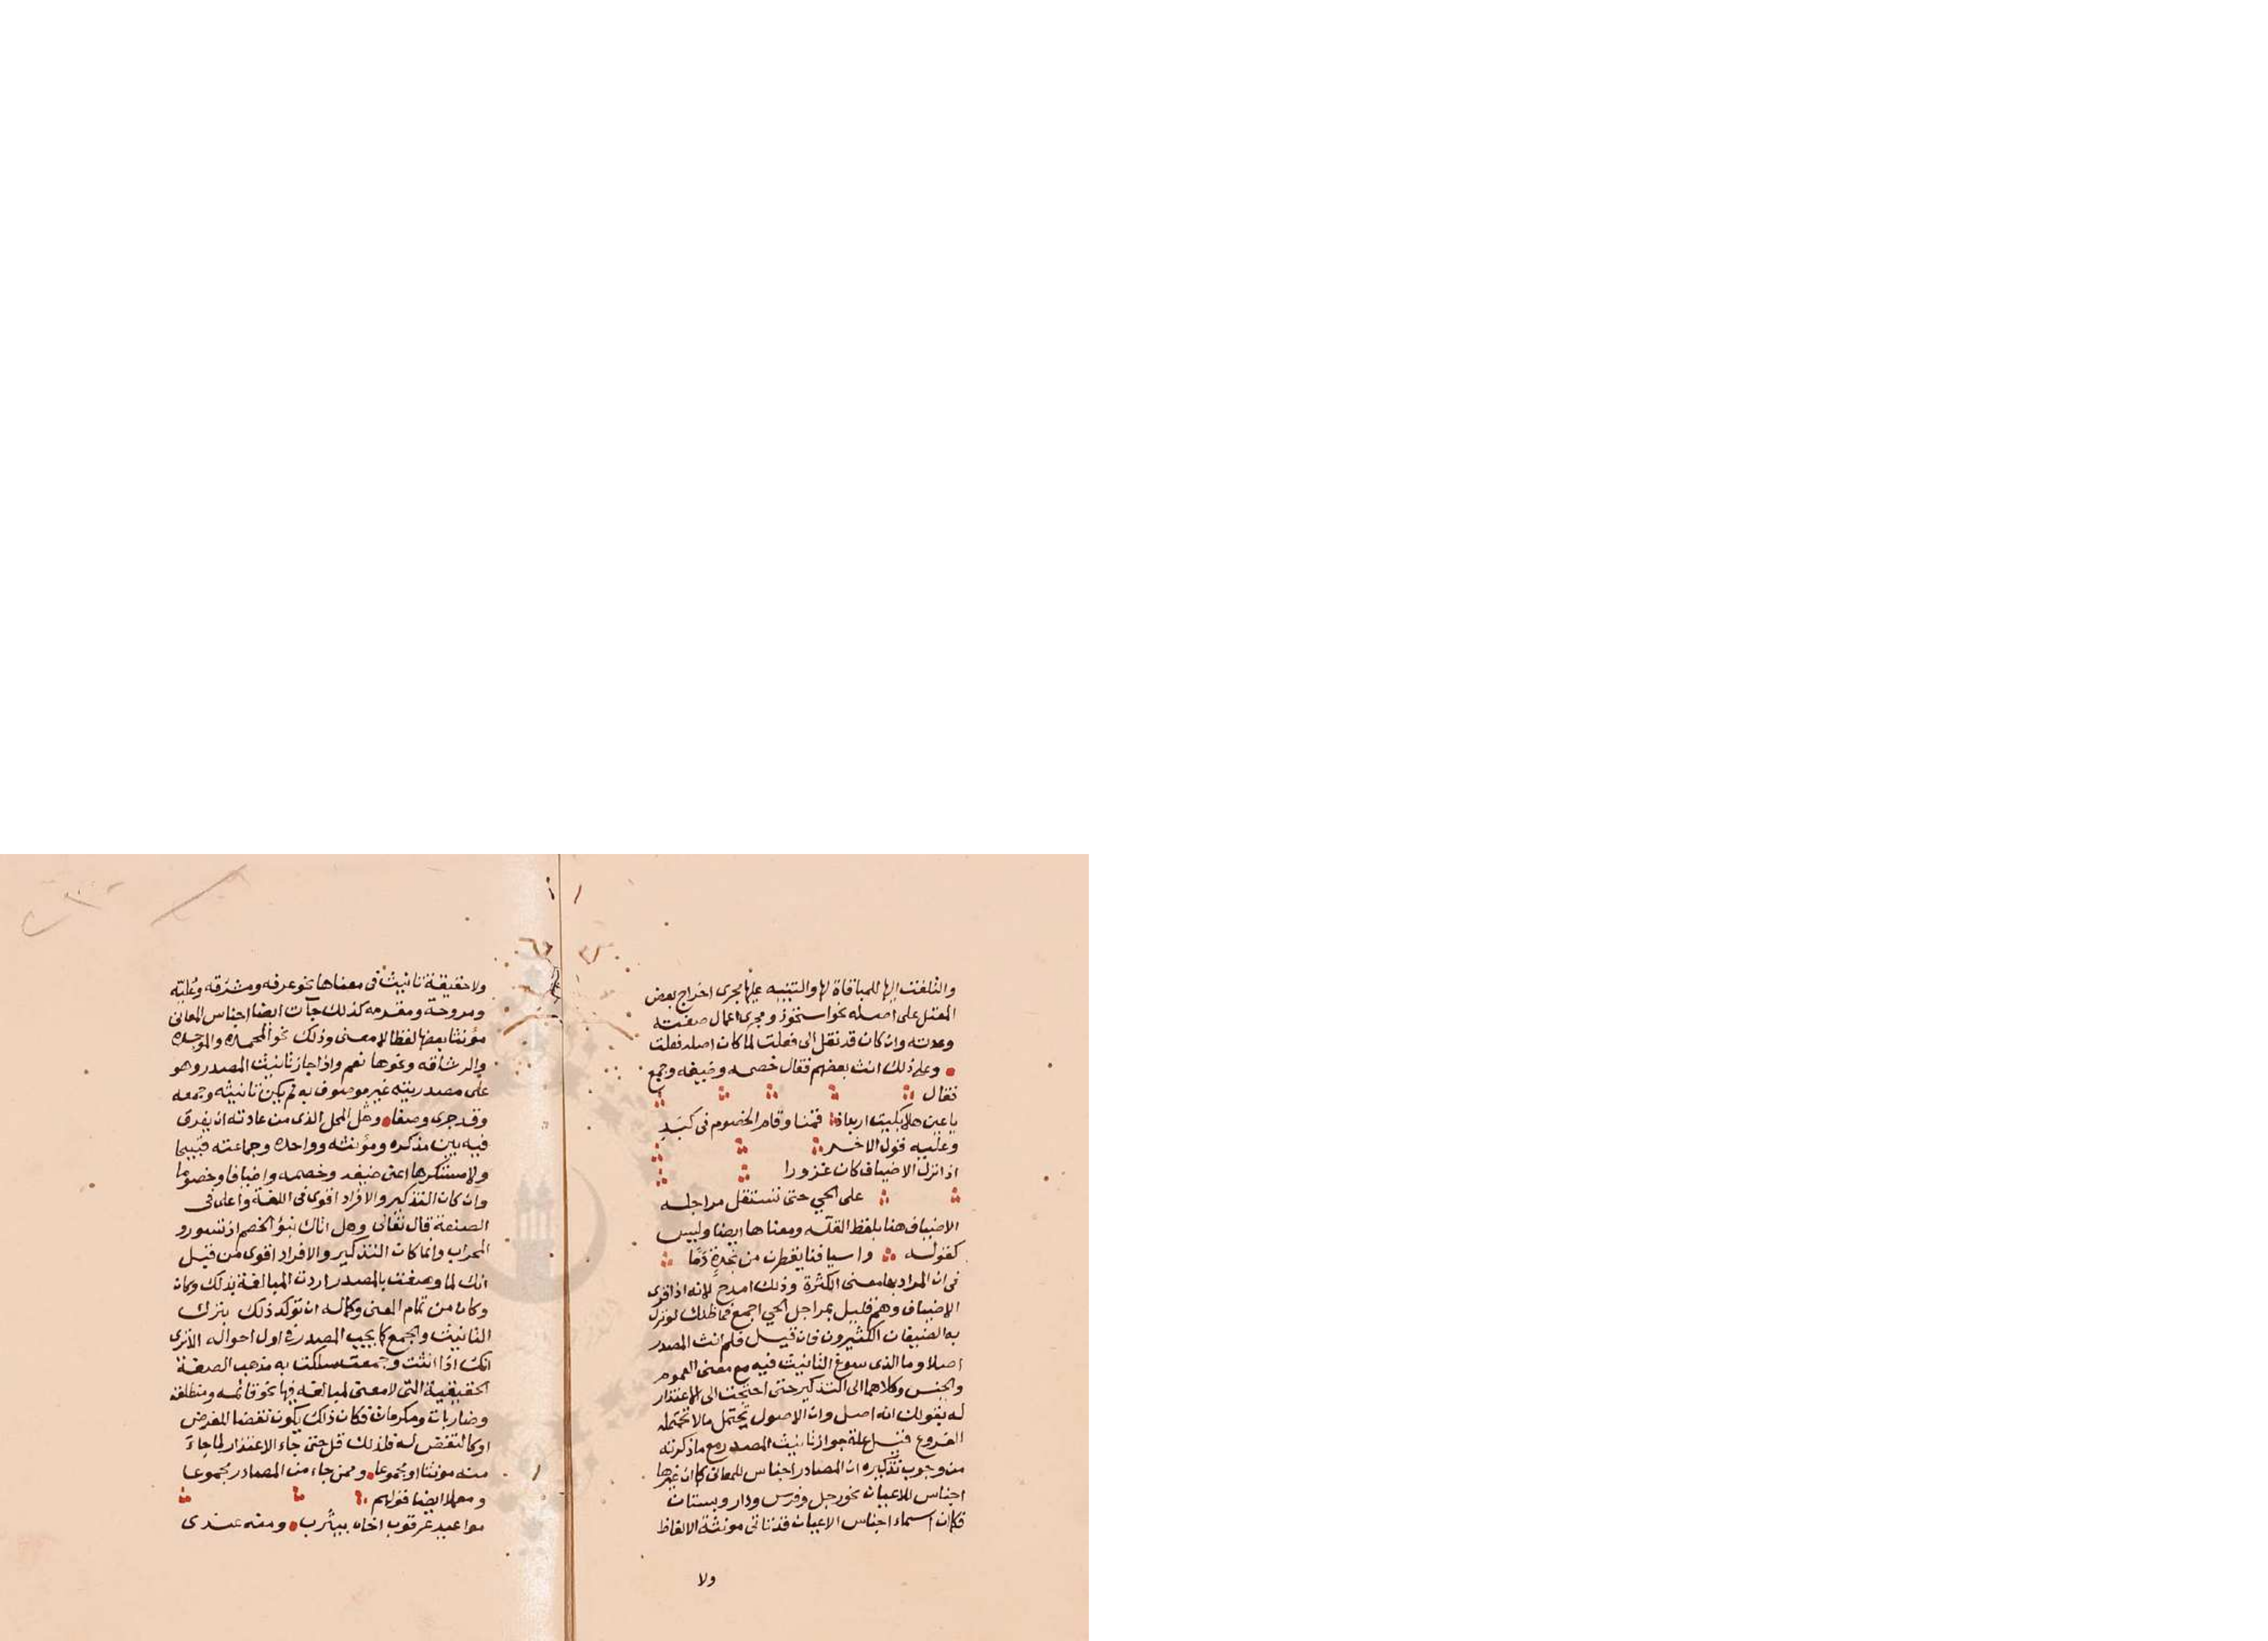 والتلفت اليها للمباقاة لها والتنبيه عليها مجرى اخراج بعض
المعتل على اصله نحو استحوذ ومجرى اعمال صغته
وعدته وان كان قد نقل الى فعلت لما كان اصله فعلت
وعلى ذلك انث بعضهم فقال خصمه وضيفه وجمع
فقال
يا عين هلا بكيت اربد اذ قمنا وقام الخصوم فى كبد
وعليه قول الاخر
اذا نزل الاضياف كان عذورا
على الحي حتى تستقل مراجله
الاضياف هنا بلفظ القلة ومعناها ايضا وليس
كقوله واسيافنا يقطرن من نجدة دما
فى ان المراد بها معنى الكثرة وذلك امدح لانه اذا قرى
الاضياف وهم قليل بمراجل الحي اجمع فما ظنك لو نزل
به الضيفان الكثيرون فان قيل فلم انث المصدر
اصلا وما الذى سوغ التانيث فيه مع معنى العموم
والجنس وكلاهما الى التذكير حتى احتجت الى الاعتذار
له بقولك انه اصل وان الاصول تحتمل ما لا تحتمله
الفروع قيل علة جواز تانيث المصدر مع ما ذكرته
من وجوب تذكيره ان المصادر اجناس للمعانى كما ان غيرها
اجناس للاعيان نحو رجل وفرس ودار وبستان
فكما ان اسماء اجناس الاعيان قد تاتى مونثة الالفاظ
ولا
ولا حقيقة تانيث فى معناها نحو غرفه ومشرقه وعلية
ومروحة ومقرمه كذلك جآت ايضا اجناس المعانى
مؤنثا بعضها لفظا لا معنى وذلك نحو المحمده والموجده
والرشاقه ونحوها نعم واذا جاز تانيث المصدر وهو
على مصدريته غير موصوف به لم يكن تانيثه وجمعه
وقد جرى وصفا وحل المحل الذى من عادته ان يفرق
فيه بين مذكره ومؤنثه وواحده وجماعته قبيحا
ولا مستنكرها اعنى ضيفه وخصمه واضيافا وخصوما
وان كان التذكير والافراد اقوى فى اللغة واعلى فى
الصنعة قال تعالى وهل اتاك نبؤ الخصم اذ تسوروا
المحراب وانما كان التذكير والافراد اقوى من قبل
انك لما وصفت بالمصدر اردت المبالغة بذلك وكان
وكان من تمام المعنى وكماله ان تؤكد ذلك بترك
التانيث والجمع كما يجب المصدر فى اول احواله الاترى
انك اذا انثت وجمعت سلكت به مذهب الصفة
الحقيقية التى لا معنى لمبالغه فيها نحو قائمه ومنطلقه
وضاربات ومكرمات فكان ذلك يكون نقضا للغرض
او كالنقض له فلذلك قل حتى جاء الاعتذار لما جاء
منه مونثا او مجموعا وممن جاء من المصادر مجموعا
ومعملا ايضا قولهم
مواعيد عرقوب اخاه بيثرب ومنه عندى